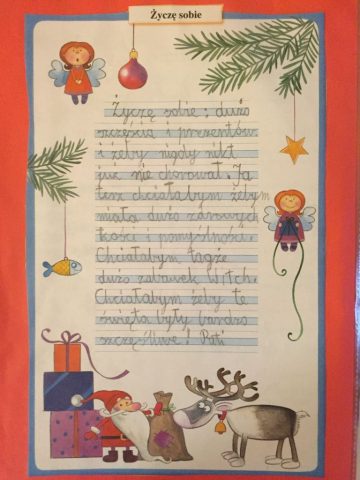 Życzę sobie
Życzę sobie: dużo
szczęścia i prezentów
i żeby nigdy nikt
już nie chorował. Ja
tesz chciałabym żebym
miała dużo zdrowych
kości i pomyślności.
Chciałabym tagże
dużo zabawek Witch.
Chciałabym żeby te
święta były bardzo
szczęśliwe!